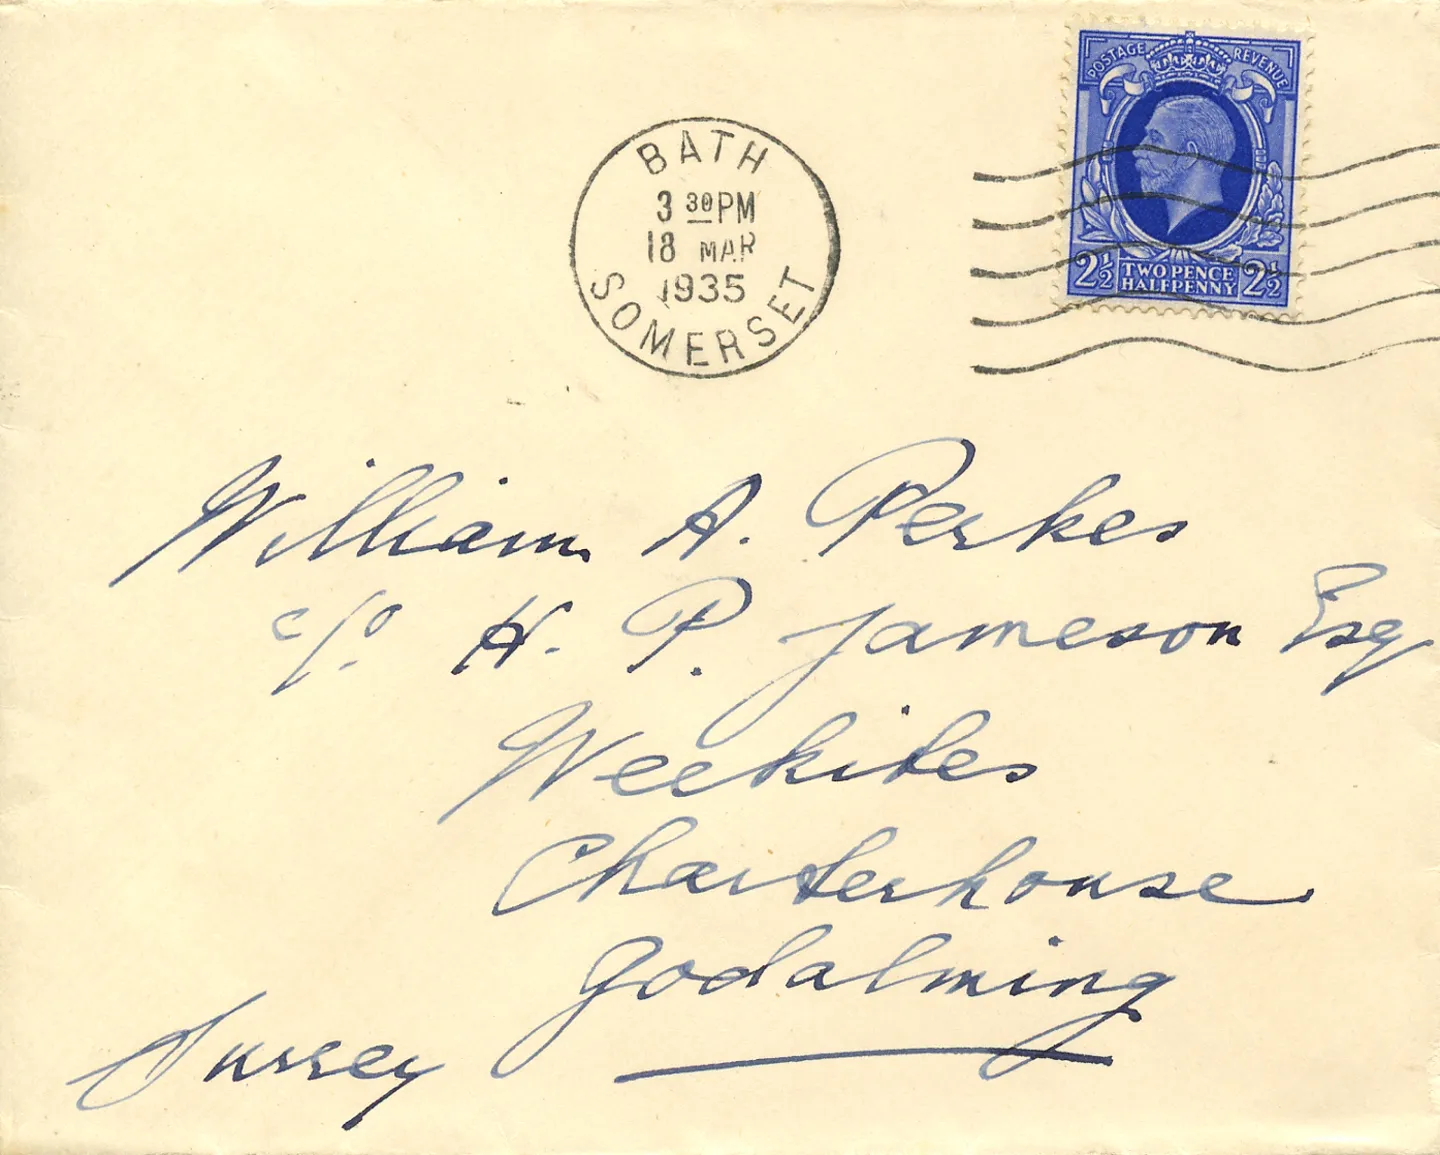 POSTAGE REVENUE
2½ TWO PENCE HALFPENNY 2½
BATH
3 30 PM
18 MAR
1935
SOMERSET
William A. Perkes
c/o. H. P. Jameson Esq
Weekites
Charterhouse
Godalming
Surrey